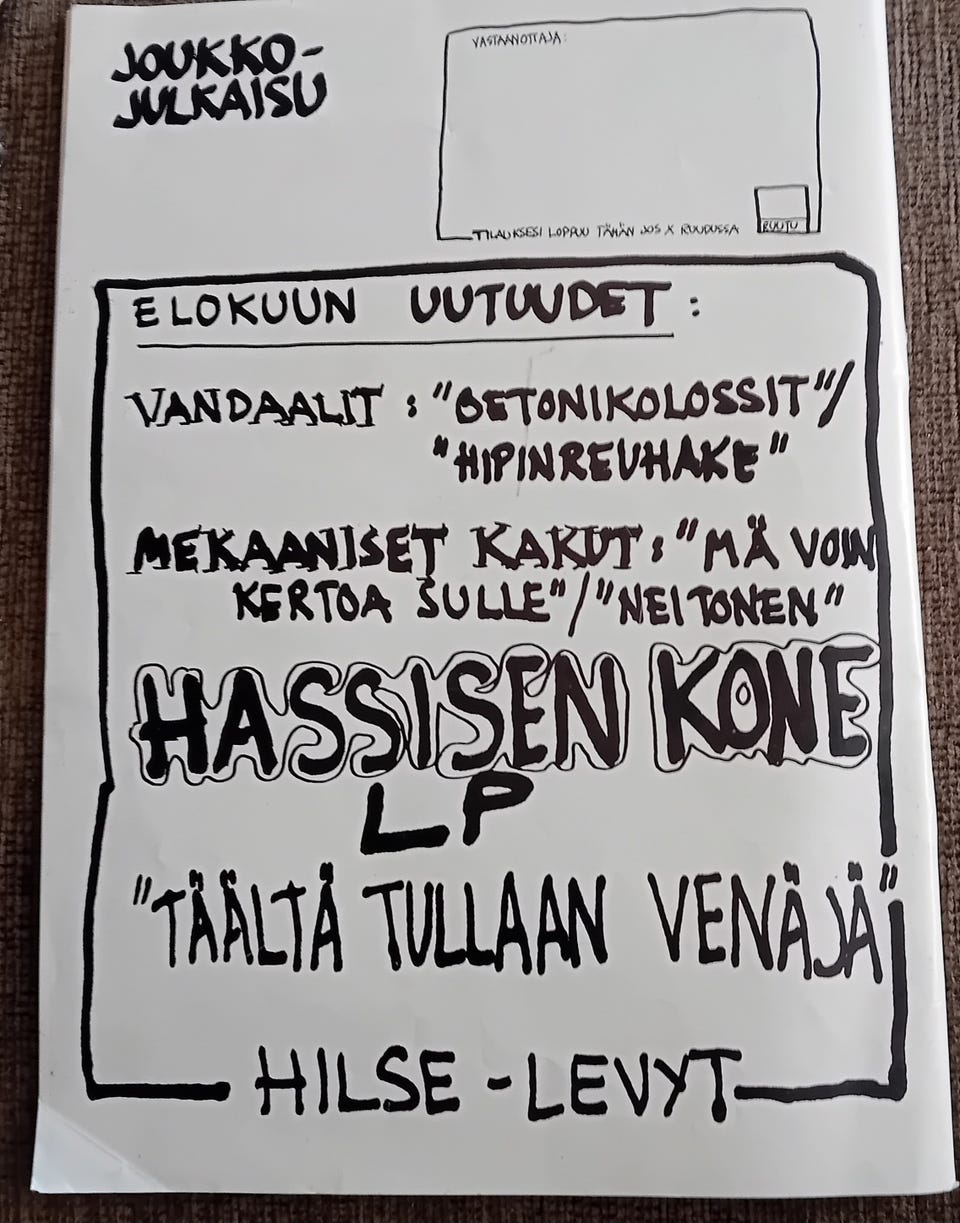 JOUKKO-
JULKAISU
VASTAANOTTAJA:
TILAUKSESI LOPPUU TÄHÄN JOS X RUUDUSSA
RUUTU
ELOKUUN UUTUUDET:
VANDAALIT: "BETONIKOLOSSIT"/
"HIPINREUHAKE"
MEKAANISET KAKUT: "MÄ VOIN
KERTOA SULLE"/"NEITONEN"
HASSISEN KONE
LP
"TÄÄLTÄ TULLAAN VENÄJÄ"
HILSE-LEVYT